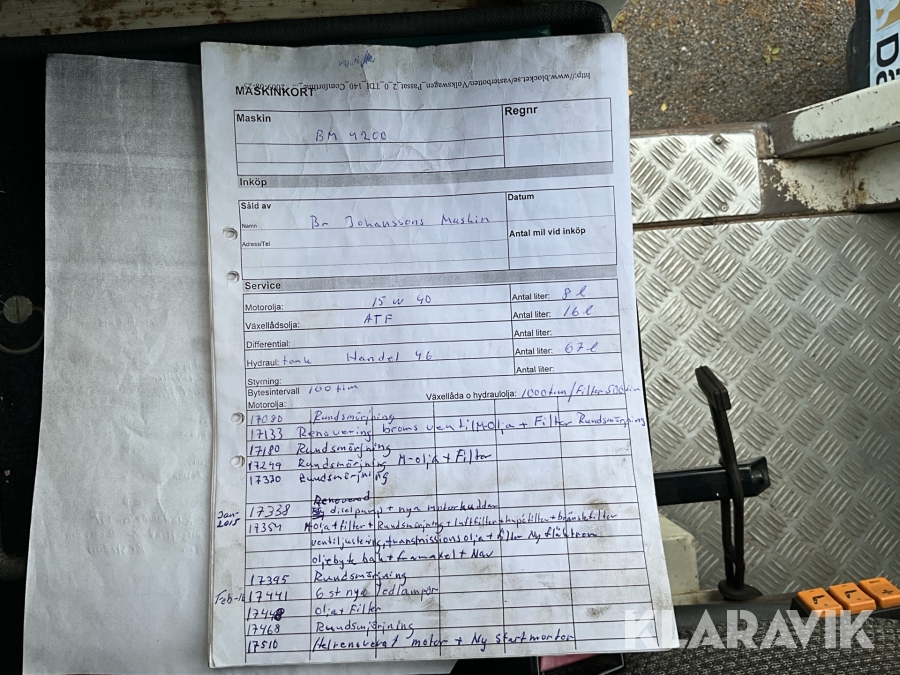 http://www.blocket.se/vasterbotten/Volkswagen_Passat_2_0_TDI_140_Comfortline_
MASKINKORT
Maskin
Regnr
BM 4200
Inköp
Såld av
Datum
Namn Br Johanssons Maskin
Adress/Tel
Antal mil vid inköp
Service
Motorolja: 15 w 40 Antal liter: 8 l
Växellådsolja: ATF Antal liter: 16 l
Differential: Antal liter:
Hydraul: tank Handel 46 Antal liter: 67 l
Styrning: Antal liter:
Bytesintervall 100 tim
Motorolja: Växellåda o hydraulolja: 1000 tim/Filter 500 tim
17080 Rundsmörjning
17133 Renovering broms ventil M-Olja + Filter Rundsmörjning
17180 Rundsmörjning
17249 Rundsmörjning M-olja + Filter
17330 Rundsmörjning
Renoverad
17338 diselpump + nya motorkuddar
Jan-2015
17354 olja + filter + Rundsmörjning + luftfilter + hyp filter + bränslefilter
ventiljustering, transmissionsolja + filter Ny fläktrem
oljebyte bak + framaxel + Nav
17395 Rundsmörjning
Feb-16 17441 6 st nya ledlampor
17448 olja + Filter
17468 Rundsmörjning
17510 Helrenoverat motor + Ny startmotor
KLARAVIK